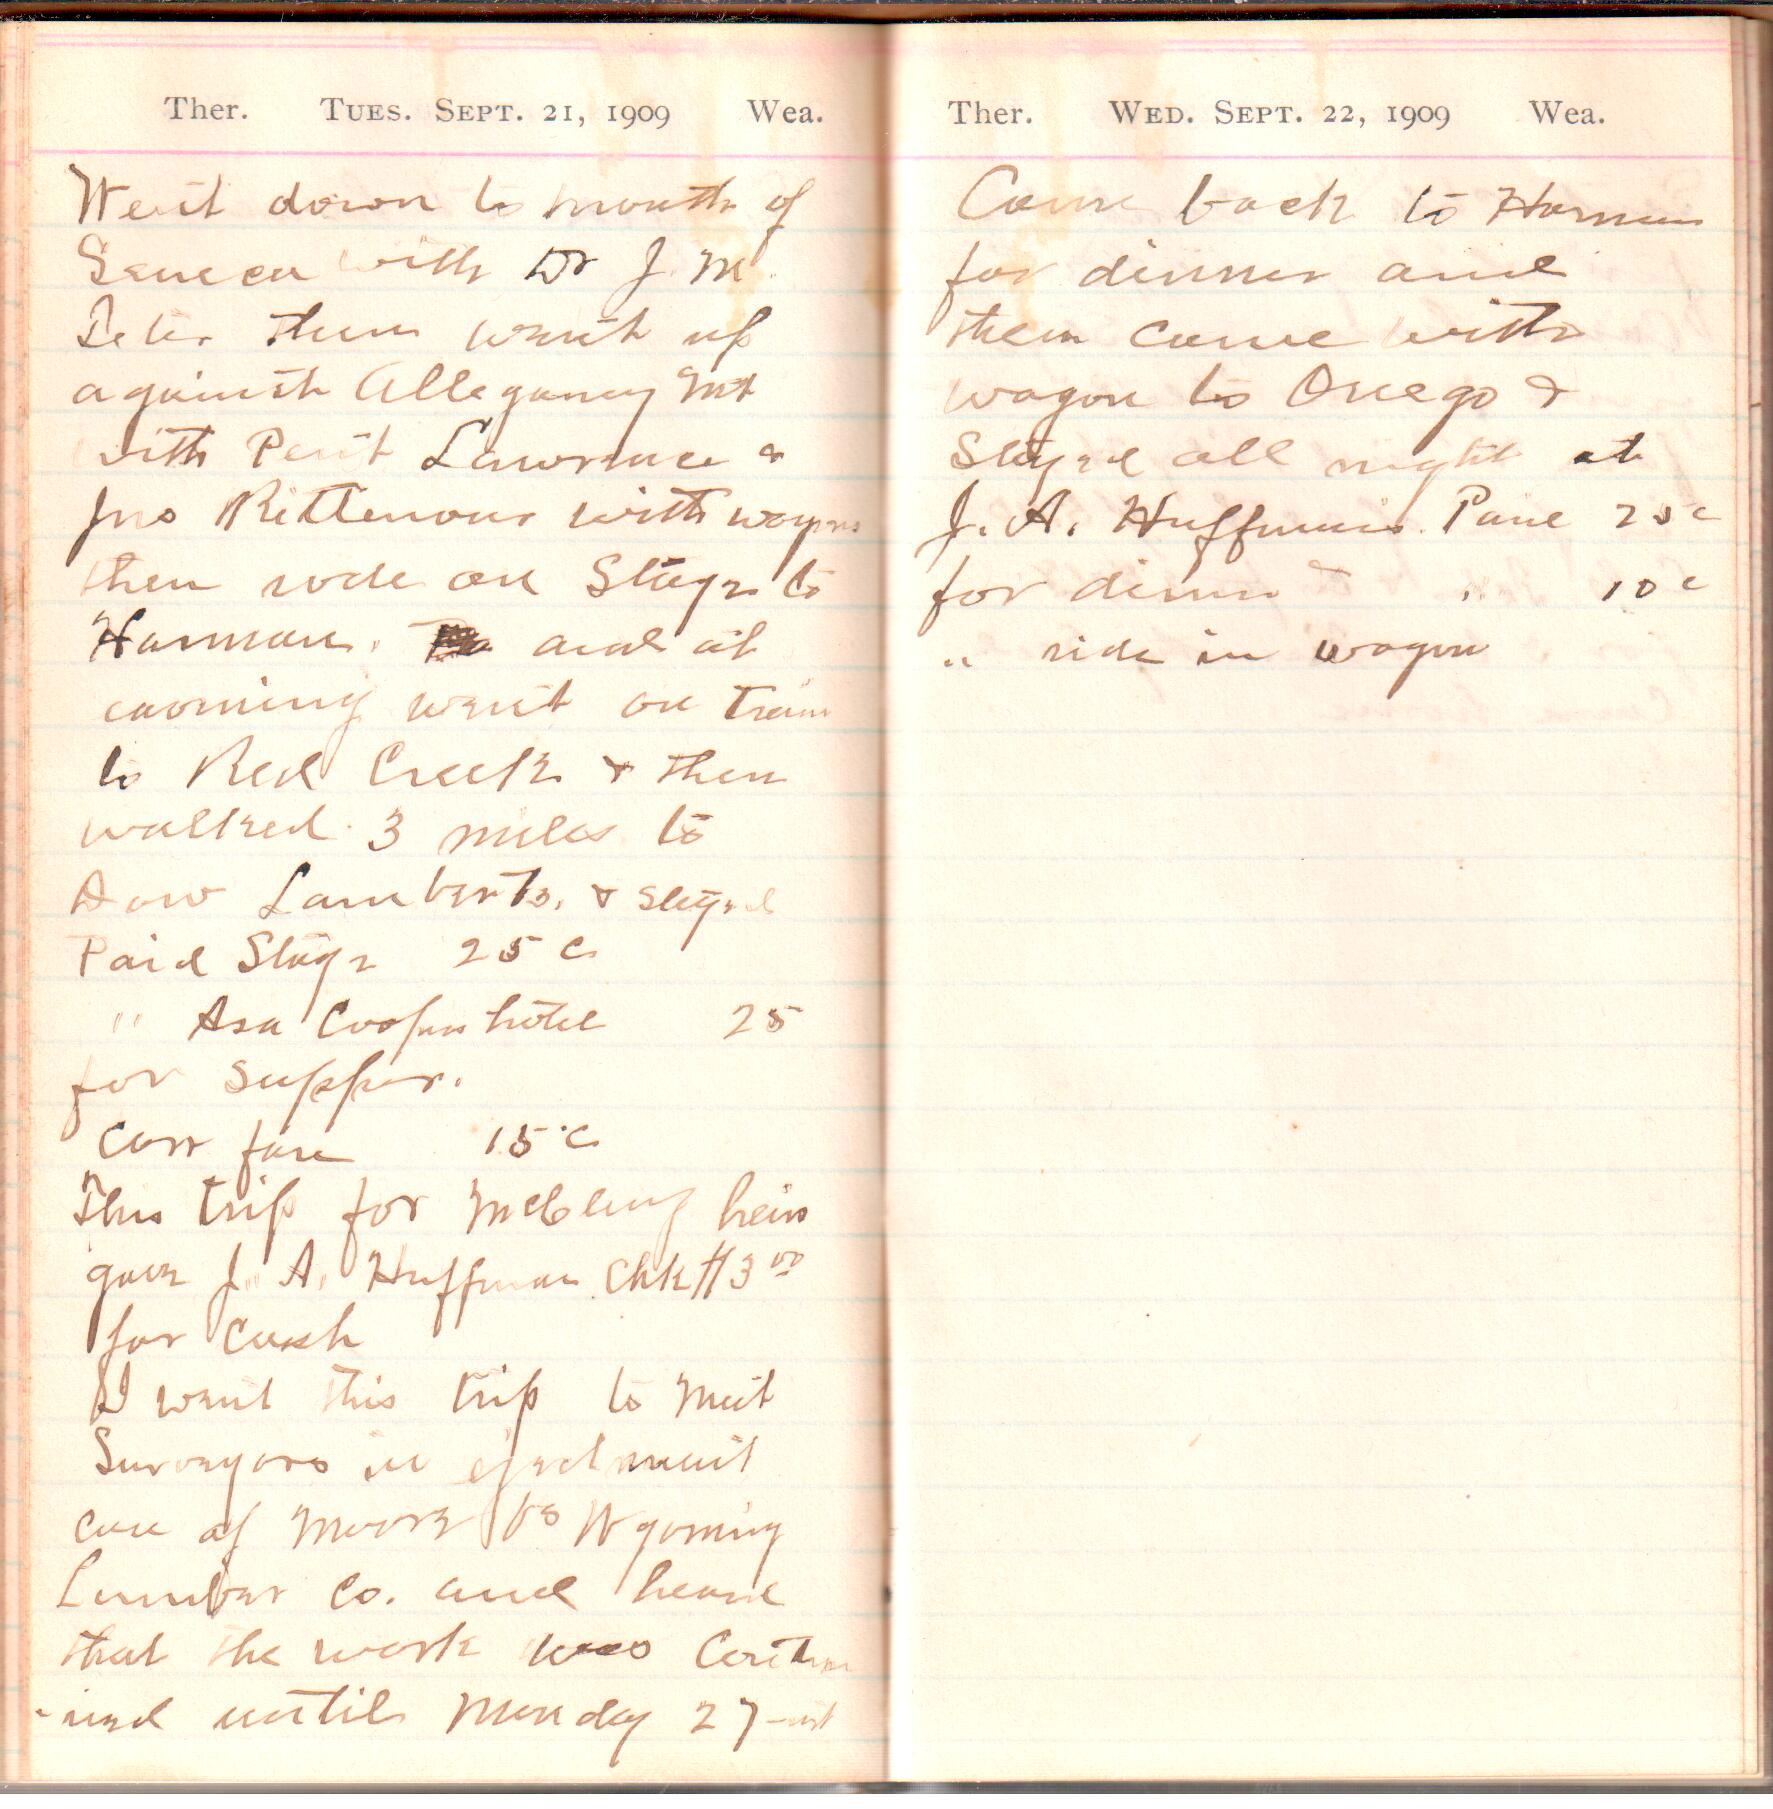 Ther. Tues. Sept. 21, 1909 Wea.
Went down to mouth of
Seneca with Dr J. M.
then went up
against Allegany Mt
with Lawrence &
Jno Rittenour with
then rode on Stage to
Harman. and at
evening went on train
to Red Creek & then
walked 3 miles to
Dow Lamberts, & stayed
Paid Stage 25 c
" Asa Coopers hotel 25
for supper.
Carr fare 15 c
This trip for heirs
gave J. A. Huffman Chk #3 00
for Cash
I went this trip to meet
Surveyors in ejectment
case of Moore vs Wyoming
Lumber Co. and heard
that the work was Contin
-ued until Monday 27
Ther. Wed. Sept. 22, 1909 Wea.
Came back to Harman
for dinner and
then came with
wagon to Onego &
Stayed all night at
J. A. Huffmans. Paid 25 c
for dinner " 10 c
" ride in wagon